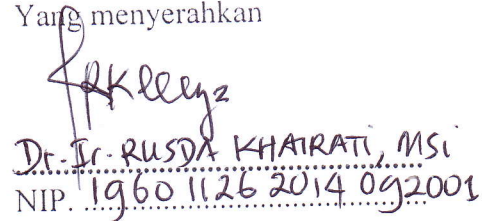 Yang menyerahkan
Dr. Ir. RUSDA KHAIRATI, MSi
NIP. 19601126 2014 092001